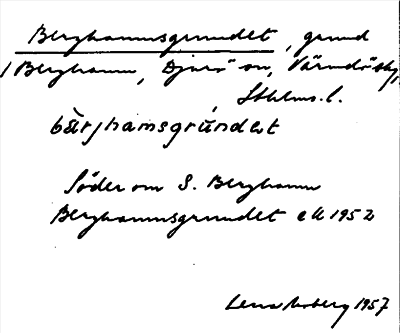 Berghamnsgrundet, grund
/ Berghamn, Djurö sn, Värmdö skg,
Sthlms l.
bàrjhamsgrúndet
Söder om S. Berghamn
Berghamnsgrundet ek 1952
Lena 1957